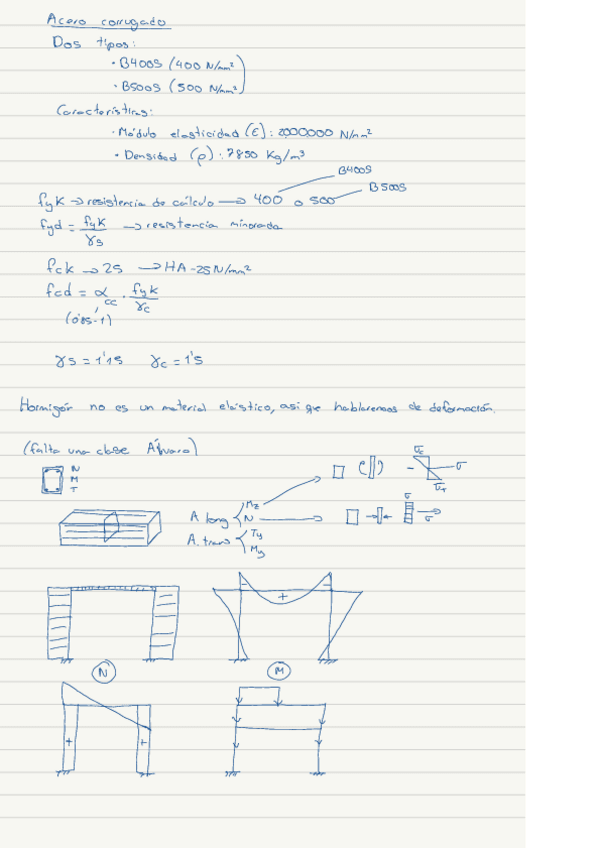 Acero corrugado
Dos tipos:
· B400S (400 N/mm²)
· B500S (500 N/mm²)
Características:
· Módulo elasticidad (E): 2000000 N/mm²
· Densidad (ρ): 7850 Kg/m³
B400S
fyk → resistencia de cálculo → 400 o 500
B500S
fyd = fyk/γs → resistencia minorada
fck → 25 → HA-25N/mm²
fcd = αcc · fyk/γc
(0'85-1)
γs = 1'15 γc = 1'5
Hormigón no es un material elástico, asi que hablaremos de deformación.
(falta una clase Álvaro)
N
M
T
σc
σ
σT
A long
Mz
N
σ
σ
A. trans
Ty
My
- - +
N
M
+ +